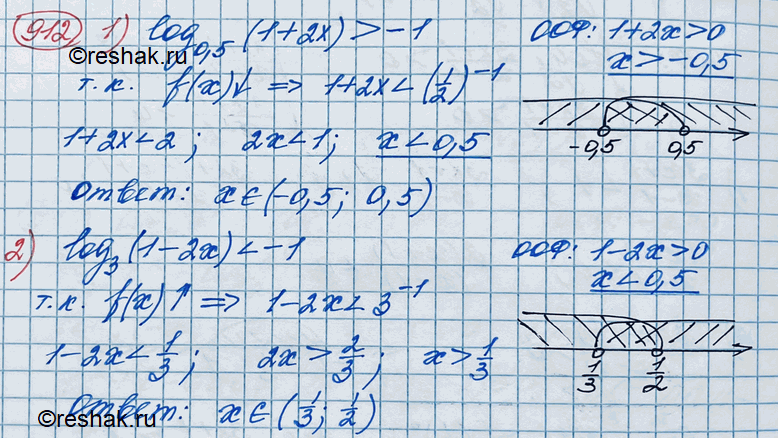 912 1) log₀,₅ (1+2x) > -1 ООФ: 1+2x>0
©reshak.ru x > -0,5
т.к. f(x)↓ => 1+2x < (1/2)⁻¹
1+2x<2; 2x<1; x<0,5
-0,5 0,5
Ответ: x∈(-0,5; 0,5)
2) log₃(1-2x) < -1 ООФ: 1-2x>0
x<0,5
т.к. f(x)↑ => 1-2x<3⁻¹
1-2x < 1/3; 2x > 2/3; x > 1/3
1/3 1/2
Ответ: x∈(1/3; 1/2)
©reshak.ru
©reshak.ru